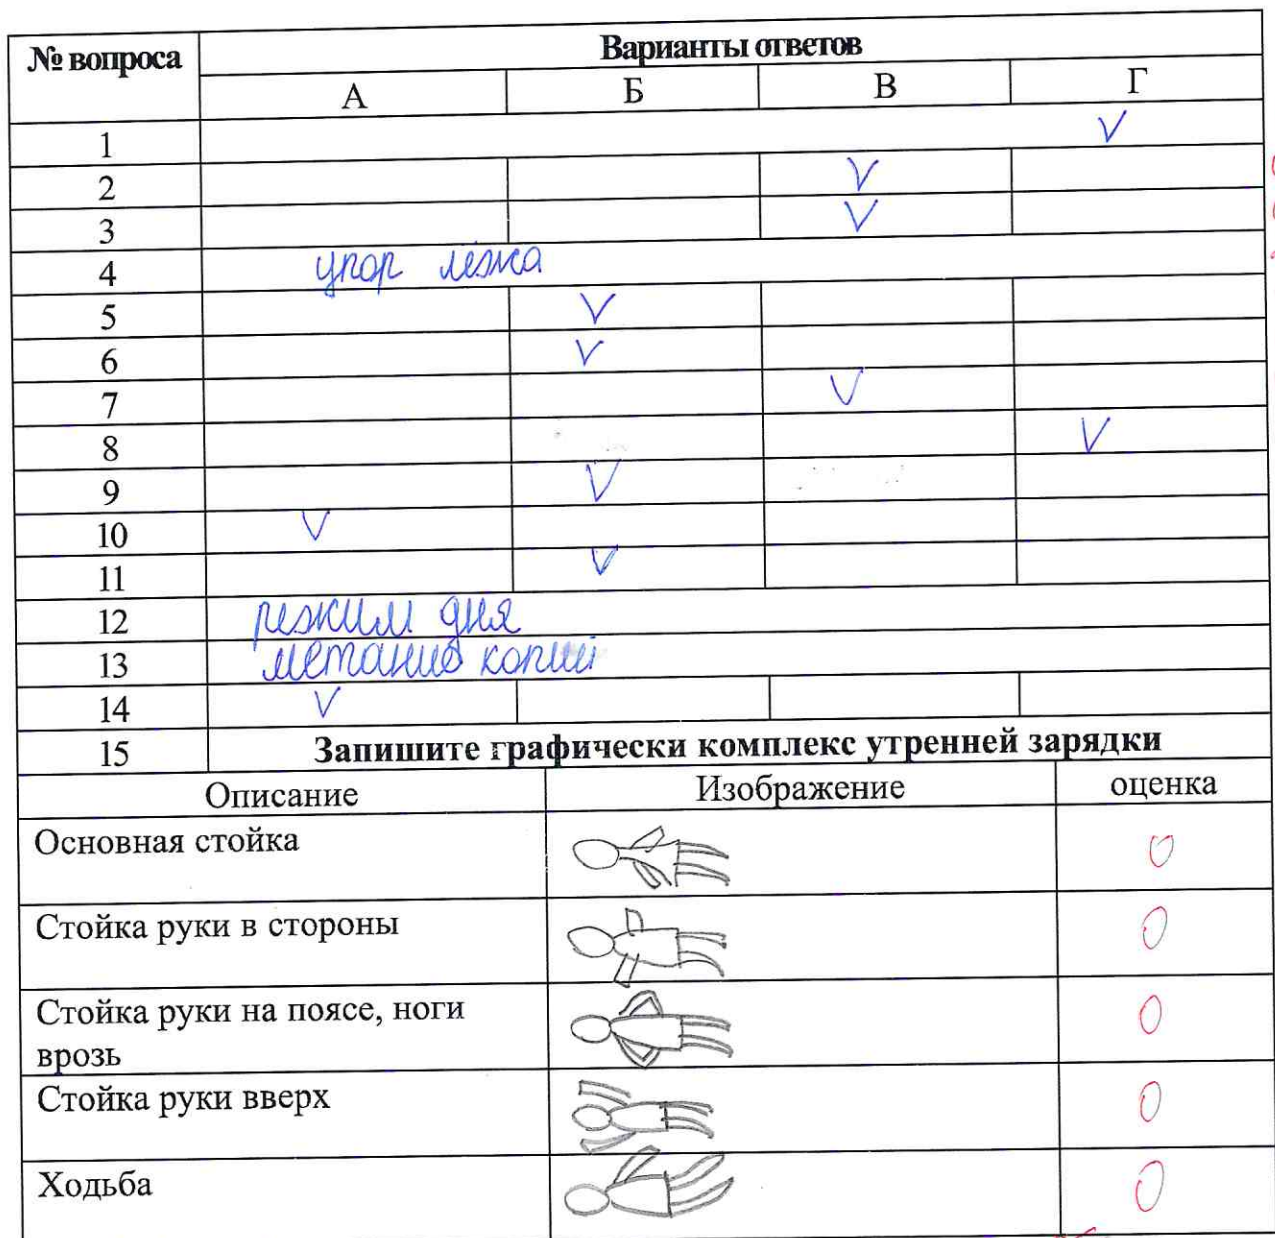 № вопроса Варианты ответов
А Б В Г
1 V
2 V
3 V
4 упор лёжа
5 V
6 V
7 V
8 V
9 V
10 V
11 V
12 режим дня
13 метание копий
14 V
15 Запишите графически комплекс утренней зарядки
Описание Изображение оценка
Основная стойка 0
Стойка руки в стороны 0
Стойка руки на поясе, ноги
врозь 0
Стойка руки вверх 0
Ходьба 0